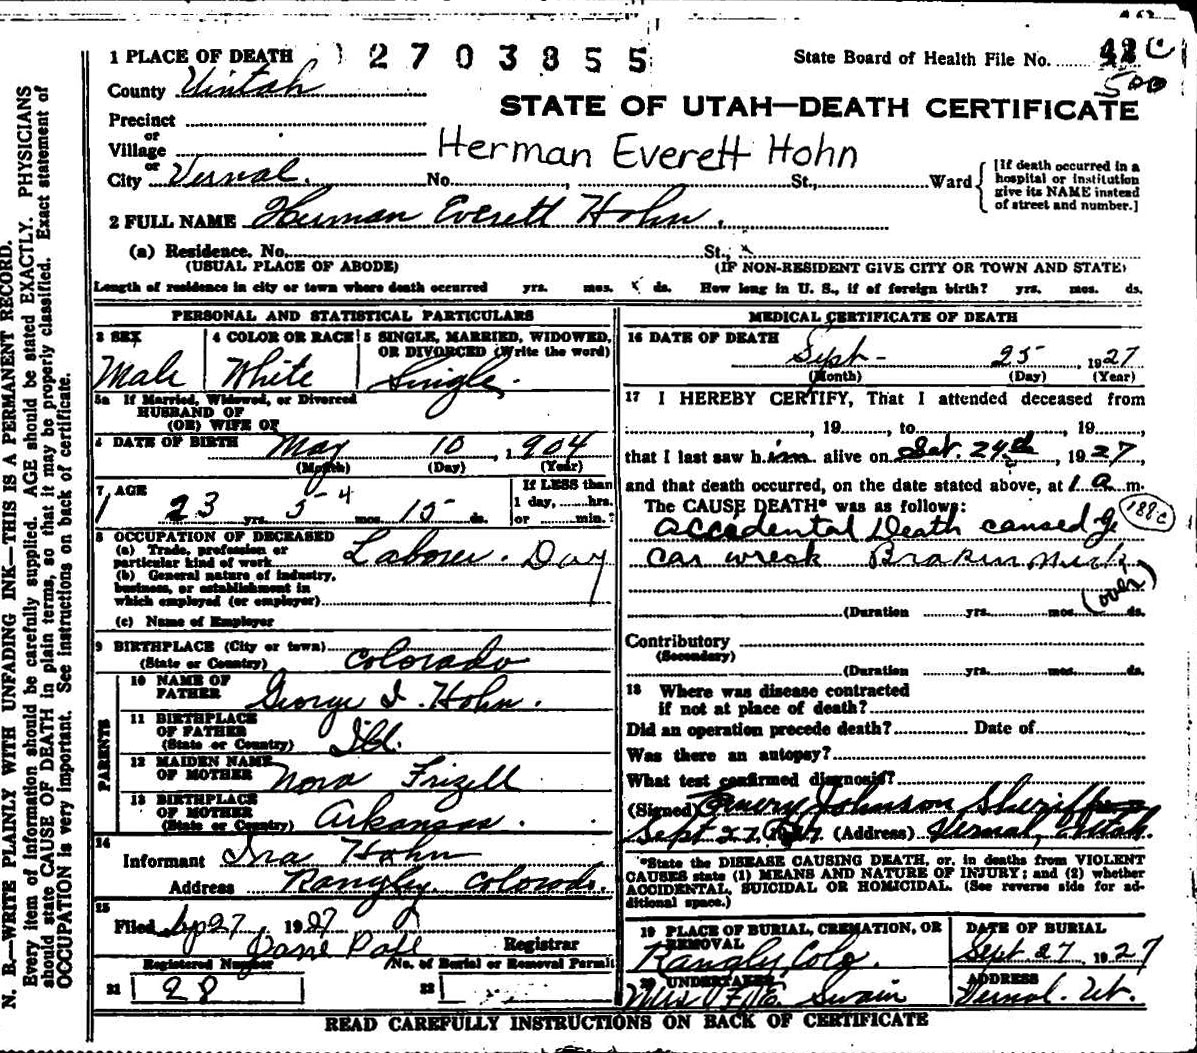 1 PLACE OF DEATH 2703855 State Board of Health File No. 42 C
500
County Uintah
STATE OF UTAH—DEATH CERTIFICATE
Precinct
or
Village
Herman Everett Hohn
or
City Vernal. No. , St., Ward
[If death occurred in a
hospital or institution
give its NAME instead
of street and number.]
2 FULL NAME Herman Everett Hohn.
(a) Residence. No. St.,
(USUAL PLACE OF ABODE) (IF NON-RESIDENT GIVE CITY OR TOWN AND STATE)
Length of residence in city or town where death occurred yrs. mos. ds. How long in U. S., if of foreign birth? yrs. mos. ds.
PERSONAL AND STATISTICAL PARTICULARS
3 SEX 4 COLOR OR RACE 5 SINGLE, MARRIED, WIDOWED,
OR DIVORCED (Write the word)
Male White Single.
5a If Married, Widowed, or Divorced
HUSBAND OF
(OR) WIFE OF
6 DATE OF BIRTH May 10, 1904
(Month) (Day) (Year)
7 AGE If LESS than
23 yrs. 5 4 mos. 15 ds. 1 day, hrs.
or min.?
8 OCCUPATION OF DECEASED
(a) Trade, profession or
particular kind of work Laborer. Day
(b) General nature of industry,
business, or establishment in
which employed (or employer)
(c) Name of Employer
9 BIRTHPLACE (City or town)
(State or Country) Colorado
PARENTS
10 NAME OF
FATHER George I. Hohn.
11 BIRTHPLACE
OF FATHER
(State or Country) Ill.
12 MAIDEN NAME
OF MOTHER Nora Frizell
13 BIRTHPLACE
OF MOTHER
(State or Country) Arkansas.
14
Informant Ira Hohn
Address Rangly Colorado.
15
Filed Sep 27 1927
Registrar
Registered Number /No. of Burial or Removal Permit
21 28 22
MEDICAL CERTIFICATE OF DEATH
16 DATE OF DEATH
Sept- 25, 1927
(Month) (Day) (Year)
17 I HEREBY CERTIFY, That I attended deceased from
, 19, to , 19,
that I last saw him alive on Sat. 24th, 1927,
and that death occurred, on the date stated above, at 1 a m.
The CAUSE DEATH* was as follows:
188c
accidental Death caused
car wreck Broken neck
(over)
(Duration yrs. mos. ds.
Contributory
(Secondary)
(Duration yrs. mos. ds.
18 Where was disease contracted
if not at place of death?
Did an operation precede death? Date of
Was there an autopsy?
What test confirmed diagnosis?
(Signed) Emery Johnson Sheriff
Sept 27, 1927 (Address) Vernal, Utah.
*State the DISEASE CAUSING DEATH, or, in deaths from VIOLENT
CAUSES state (1) MEANS AND NATURE OF INJURY; and (2) whether
ACCIDENTAL, SUICIDAL OR HOMICIDAL. (See reverse side for ad-
ditional space.)
19 PLACE OF BURIAL, CREMATION, OR DATE OF BURIAL
REMOVAL
Rangly, Colo. Sept 27 1927
20 UNDERTAKER ADDRESS
Swain Vernal. Ut.
READ CAREFULLY INSTRUCTIONS ON BACK OF CERTIFICATE
N. B.—WRITE PLAINLY WITH UNFADING INK—THIS IS A PERMANENT RECORD.
Every item of information should be carefully supplied. AGE should be stated EXACTLY. PHYSICIANS
should state CAUSE OF DEATH in plain terms, so that it may be properly classified. Exact statement of
OCCUPATION is very important. See instructions on back of certificate.